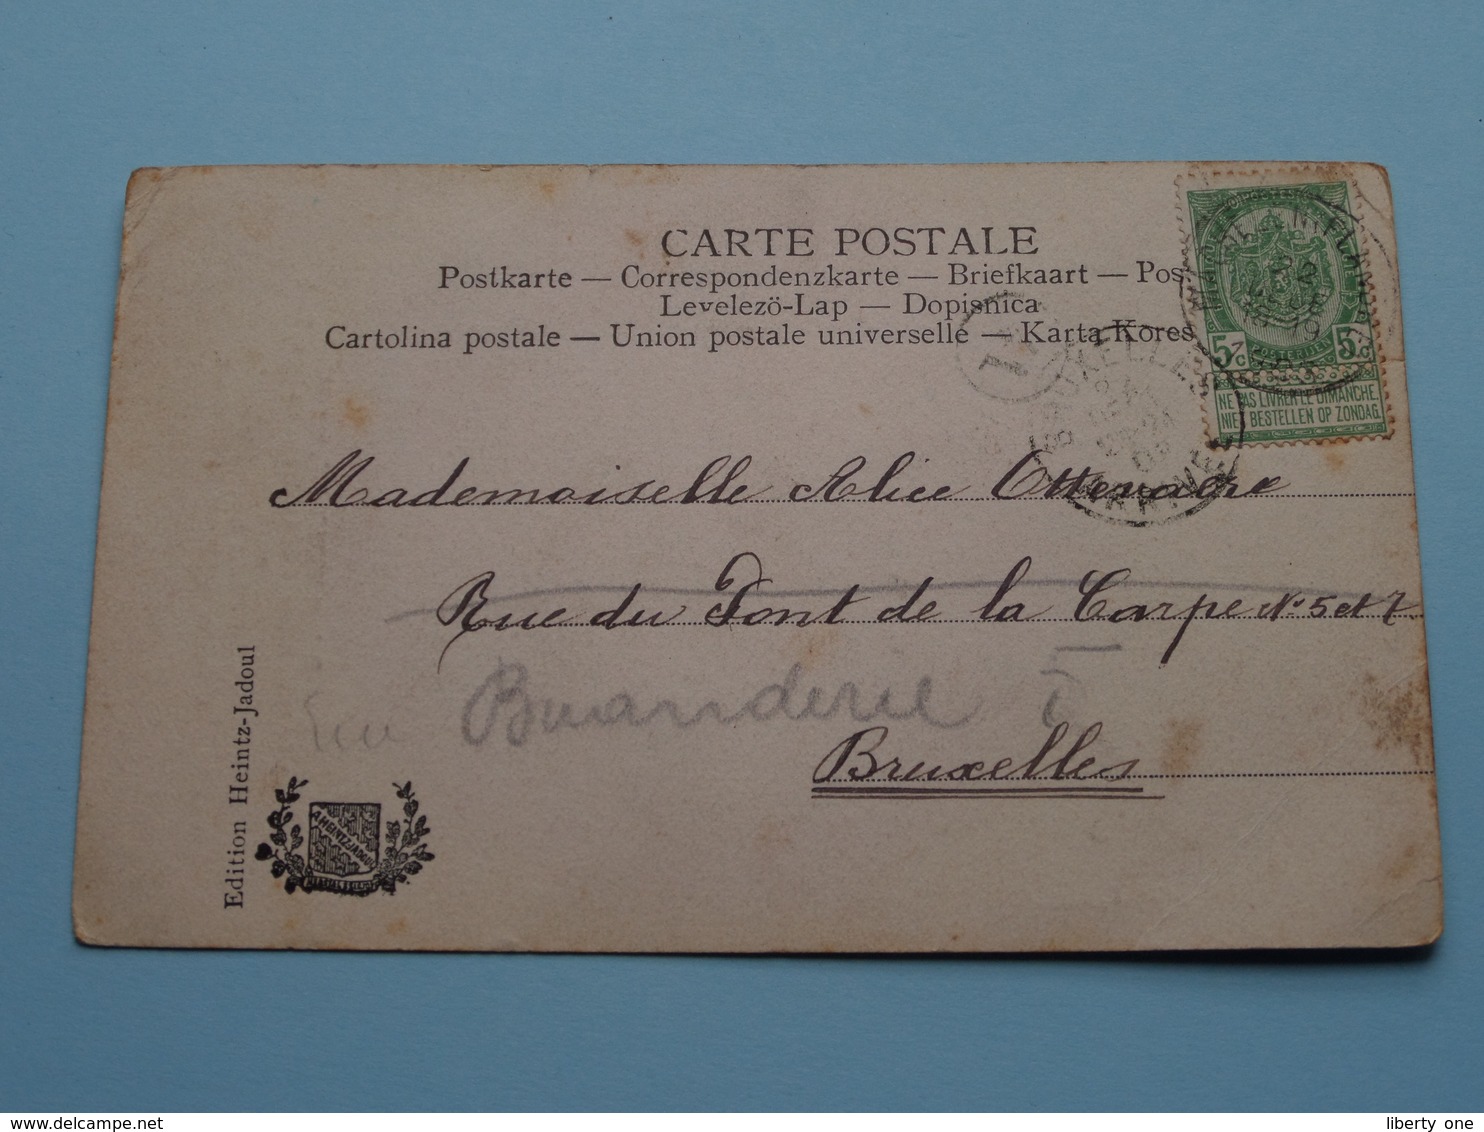 CARTE POSTALE
Postkarte — Correspondenzkarte — Briefkaart — Pos
Levelezö-Lap — Dopisnica
Cartolina postale — Union postale universelle — Karta Kores
5c 5c
NE PAS LIVRER LE DIMANCHE
NIET BESTELLEN OP ZONDAG
Mademoiselle Alice Ottevaere
Rue du Pont de la Carpe No 5 et 7
Buanderie
Bruxelles
Edition Heintz-Jadoul
A.HEINTZ-JADOUL
liberty one